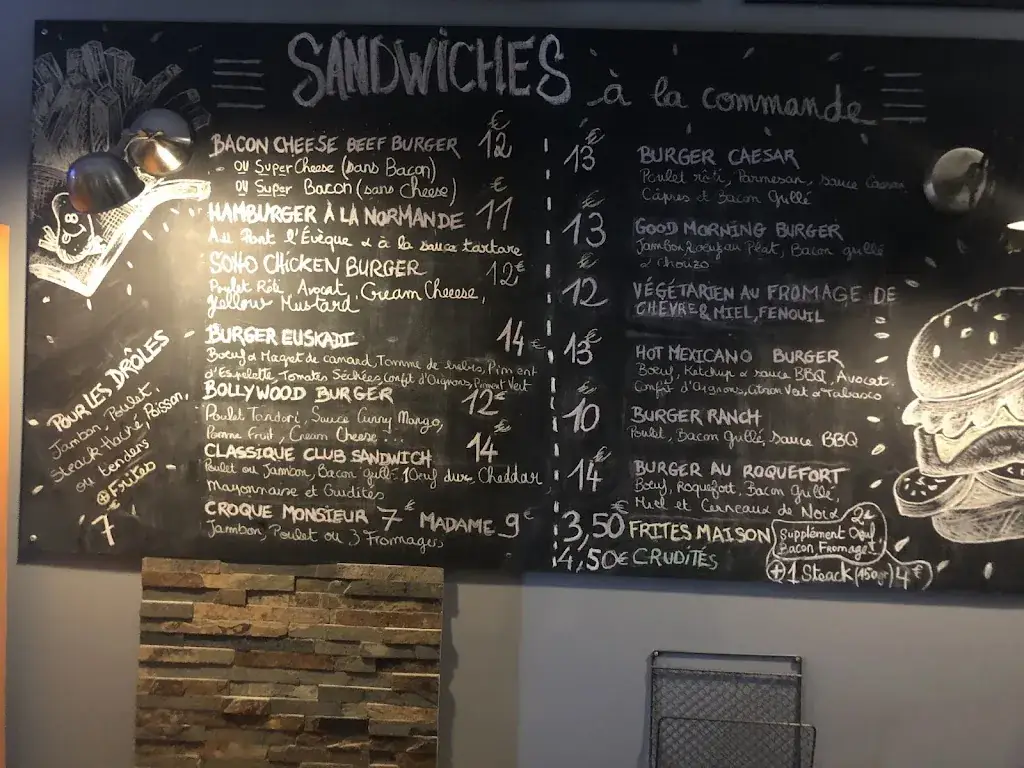 SANDWICHES à la commande
BACON CHEESE BEEF BURGER 12 €
ou Super Cheese (sans Bacon)
ou Super Bacon (sans Cheese)
HAMBURGER À LA NORMANDE 11 €
Au Pont l'Évèque & à la sauce tartare
SOHO CHICKEN BURGER 12€
Poulet Rôti, Avocat, Cream Cheeese,
Yellow Mustard
BURGER EUSKADI 14 €
Boeuf & Magret de canard, Tomme de brebis, Piment
d'Espelette Tomates Séchées, Confit d'Oignons, Piment Vert
BOLLYWOOD BURGER 12€
Poulet Tandori, Sauce Curry Mango,
Pomme Fruit, Cream Cheese...
CLASSIQUE CLUB SANDWICH 14 €
Poulet ou Jambon, Bacon Grillé, 1 Oeuf dur, Cheddar,
Mayonnaise et Crudités
CROQUE MONSIEUR 7€ MADAME 9€
Jambon, Poulet ou 3 Fromages
POUR LES DRÔLES
Jambon, Poulet,
Steack Haché, Poisson,
ou tenders
+ Frites
7€
13 € BURGER CAESAR
Poulet rôti, Parmesan, sauce Caesar,
Câpres et Bacon Grillé
13 € GOOD MORNING BURGER
Jambon, Boeuf au Plat, Bacon grillé
& Chorizo
12 € VÉGÉTARIEN AU FROMAGE DE
CHÈVRE & MIEL, FENOUIL
13 € HOT MEXICANO BURGER
Boeuf, Ketchup & sauce BBQ, Avocat,
Confit d'Oignons, Citron Vert & Tabasco
10 € BURGER RANCH
Poulet, Bacon Grillé, Sauce BBQ
14 € BURGER AU ROQUEFORT
Boeuf, Roquefort, Bacon Grillé,
Miel et Cerneaux de Noix
3,50€ FRITES MAISON
4,50€ CRUDITÉS
2€
Supplément Oeuf,
Bacon Fromage
+1 Steack (150gr) 4€